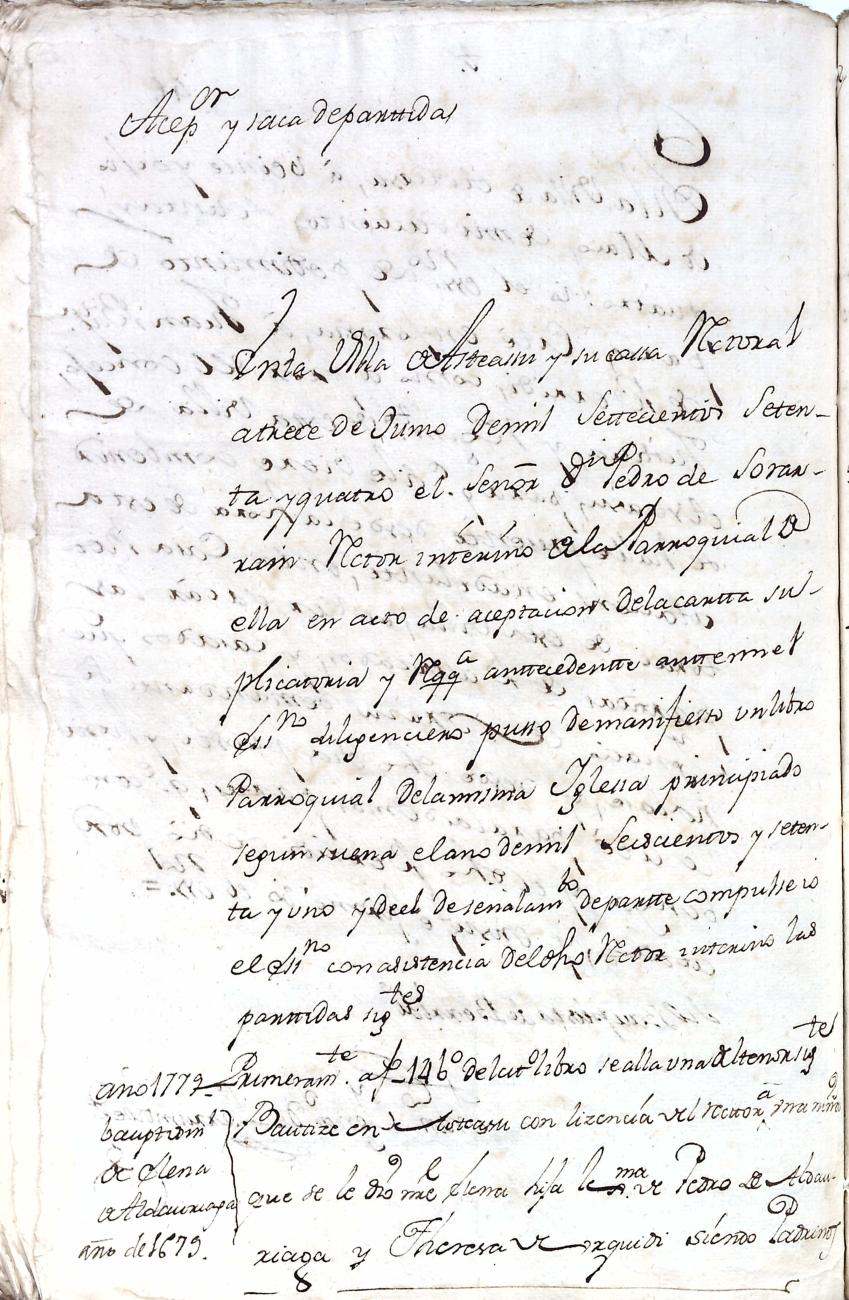 Acep.on y saca de parttidas
En la Villa de Asteasu y su cassa Rectoral
a trece de Junio de mil settecientos seten-
ta y quatro el Señor Dn Pedro de Soran-
rain Rector interino de la Parroquial de
ella en acto de aceptacion de la cartta su-
plicatoria y Rqqa anttecedentte antte mi el
Essno diligenciero pusso de manifiesto un libro
Parroquial de la misma Iglessia principiado
segun suena el ano de mil seiscientos y seten-
ta y uno y de el de señalamto de partte compulse io
el Essno con asistencia del dho Rector interino las
parttidas sigtes
Primeramte a fo 14 bo del cito libro se alla una del tenor sigte
año 1779
bauptism
de Elena
de Aldauriaga
año de 1679.
Bautize en Asteasu con lizencía del Rector a una niña
que se le dio nre Elena hija lema de Pedro de Aldau-
riaga y Theresa de siéndo Padrinos